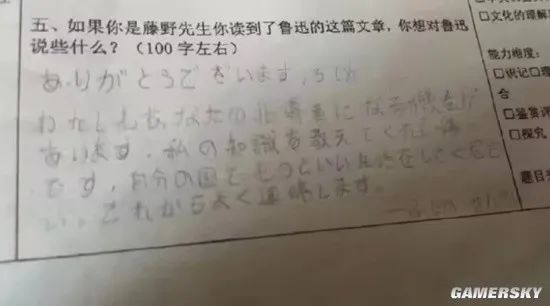 五、如果你是藤野先生你读到了鲁迅的这篇文章,你想对鲁迅
说些什么?(100字左右)
ありがとうございます,
わたしもあなたの になる機会が
あります。私の知識を教えてくれ
です,自分の国でもっといい生活をしてくださ
い。これからよく連絡します。
——ふじの せんせい
口文化的理解
能力维度:
口识记口理
合
口鉴赏评
口探究
题目
GAMERSKY